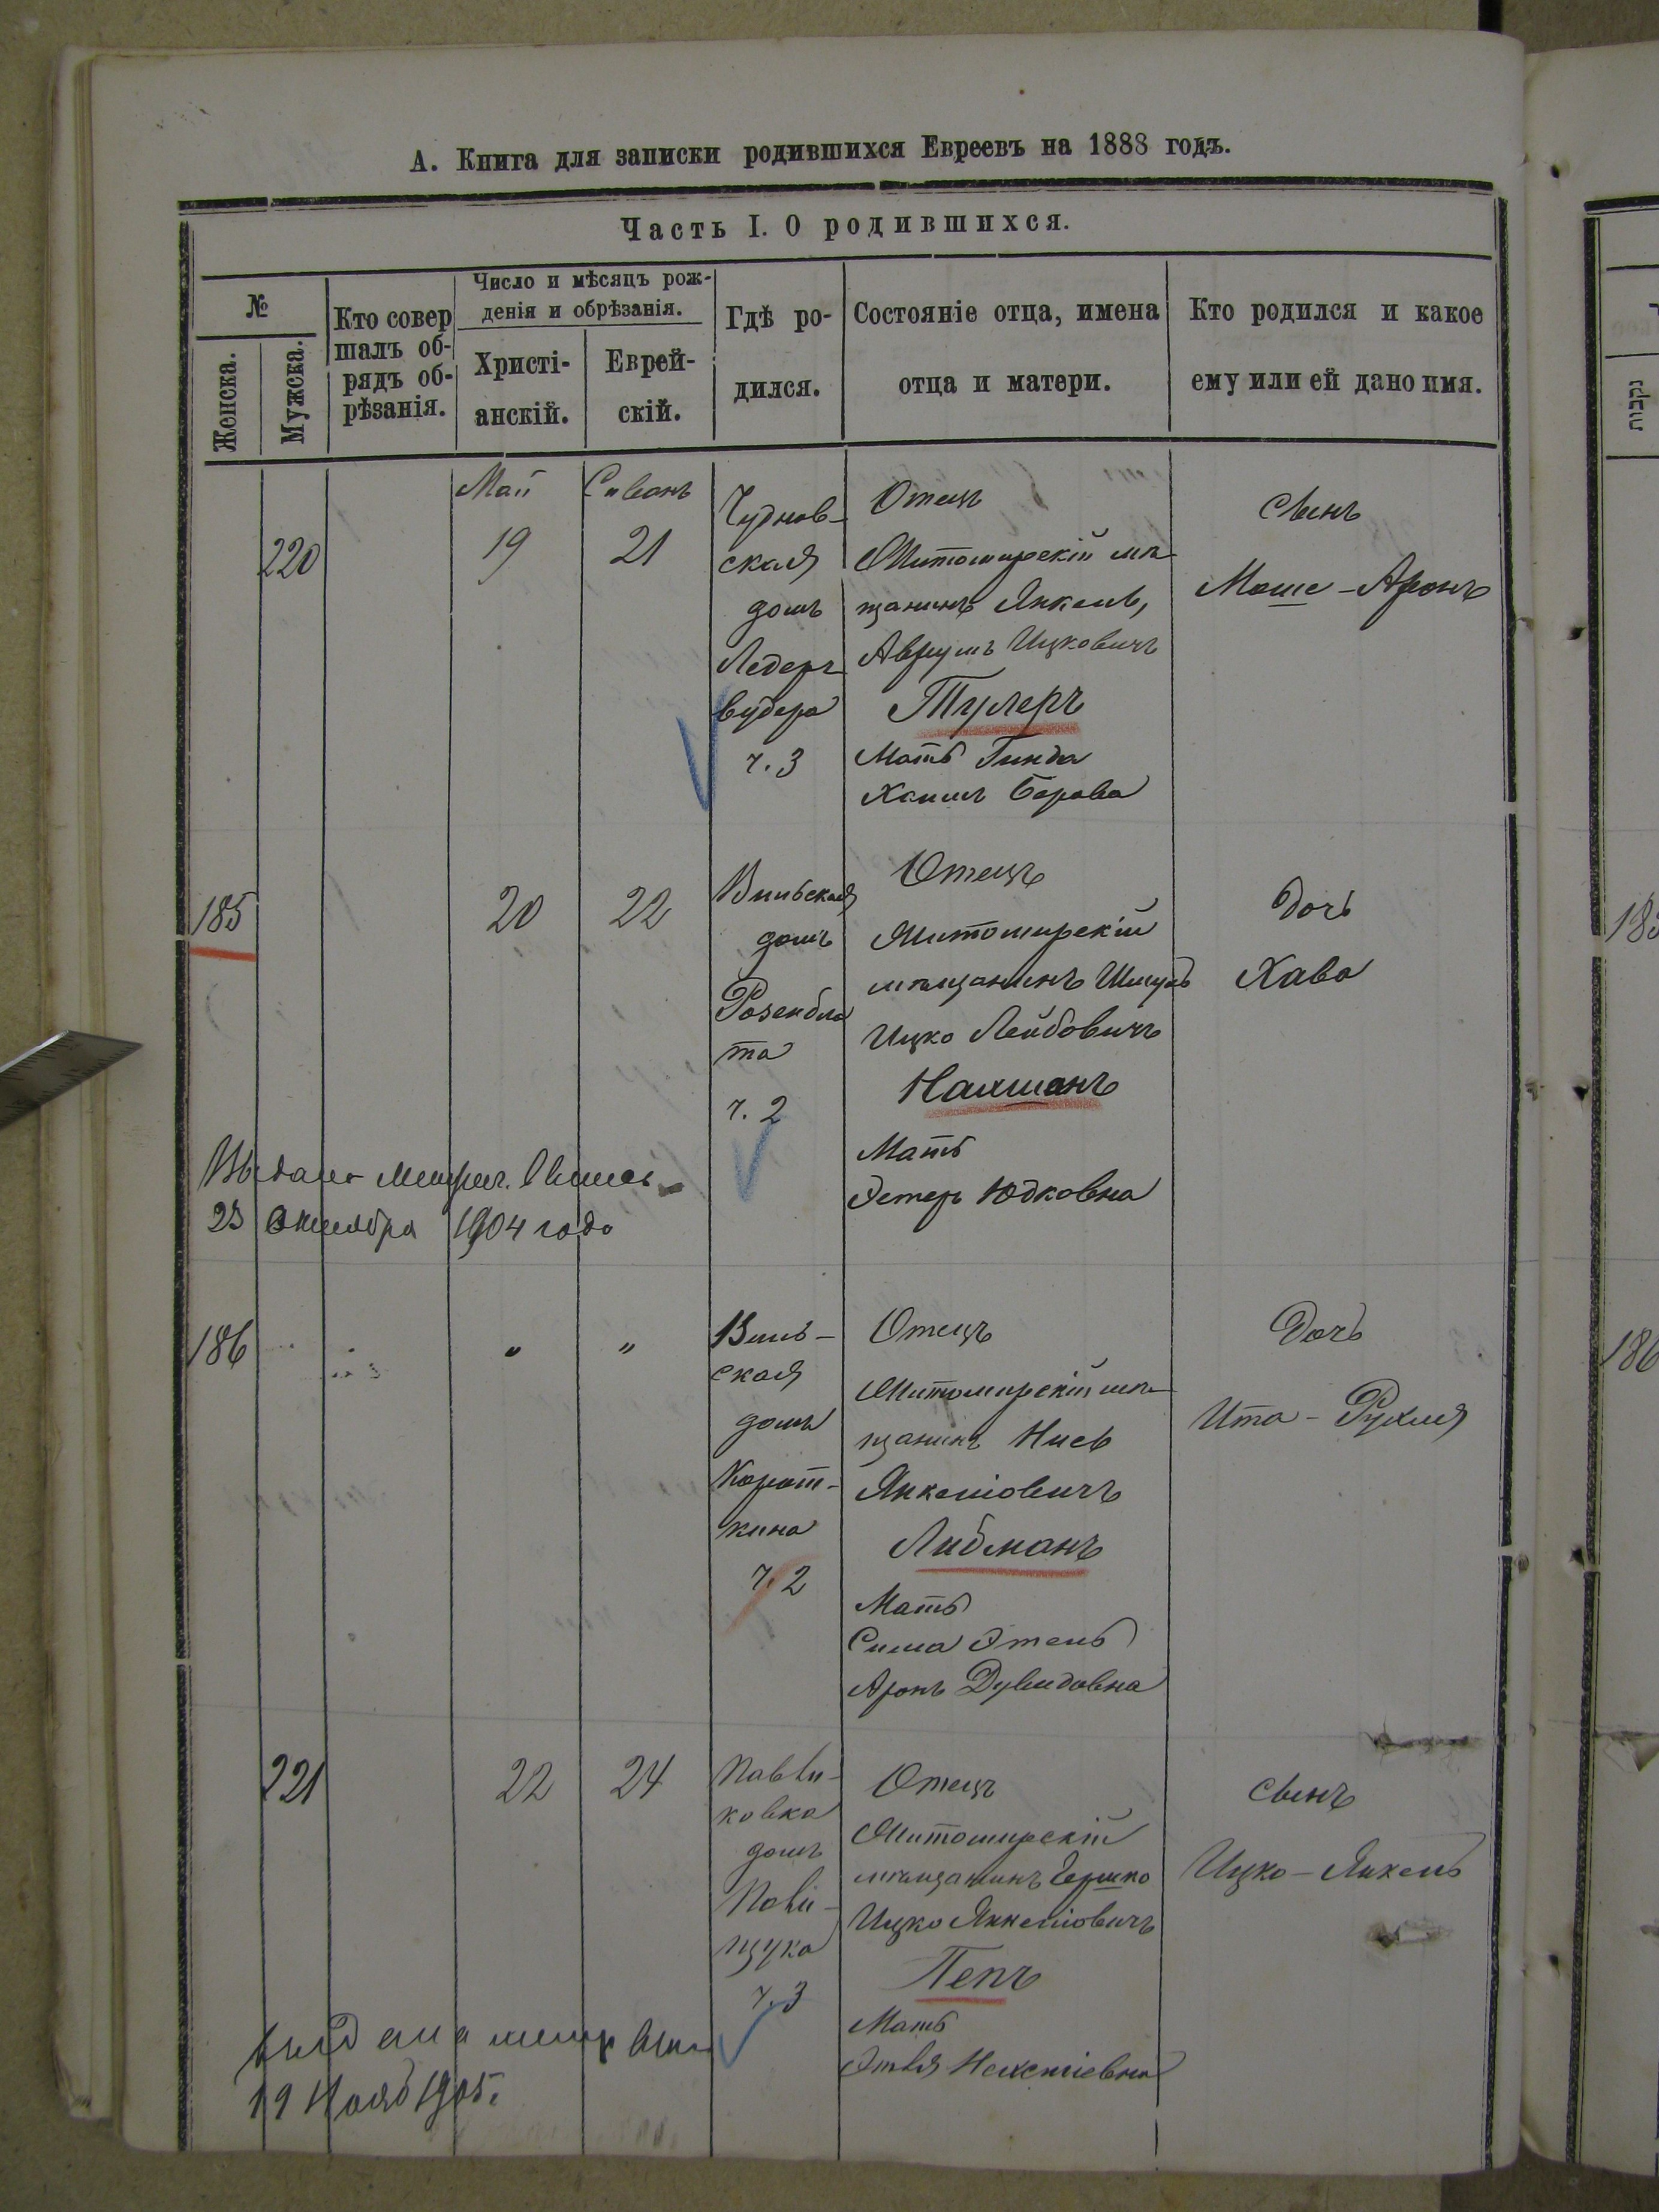 А. Книга для записки родившихся Евреевъ на 1888 годъ.
Часть I. О родившихся.
№
Женска.
Мужска.
Кто совер
шалъ об-
рядъ об-
рѣзанія.
Число и мѣсяцъ рож-
денія и обрѣзанія.
Христі-
анскій.
Еврей-
скій.
Гдѣ ро-
дился.
Состояніе отца, имена
отца и матери.
Кто родился и какое
ему или ей дано имя.
220
Май
19
Сиванъ
21
Чуднов-
ская
домъ
Ледер
вудера
ч. 3
Отецъ
Житомирскій мѣ
щанинъ Янкель,
Аврумъ Ицковичъ
Тулеръ
Мать Гинда
Хаимъ Борова
Сынъ
Моше-Аронъ
185
20
22
Вильская
домъ
Розенбла
та
ч. 2
Отецъ
Житомирскій
мѣщанинъ Шмуль
Ицко Лейбовичъ
Нахманъ
Мать
Эстеръ Юдковна
Дочь
Хава
Выдана метрич. выпись
23 Октября 1904 года
186
"
"
Виль-
ская
домъ
Корот-
кина
ч. 2
Отецъ
Житомирскій мѣ
щанинъ
Янкеліовичъ
Либманъ
Мать
Сима Этель
Аронъ Дувидовна
Дочь
Ита-Рухля
221
22
24
Павли-
ковка
домъ
Поли-
щука
ч. 3
Отецъ
Житомирскій
мѣщанинъ Гершко
Ицко Янкеліовичъ
Пепъ
Мать
Этля Нехеміевна
Сынъ
Ицко-Янкель
Выдана метр вып
19 Нояб 1905.
נקבות
185
186